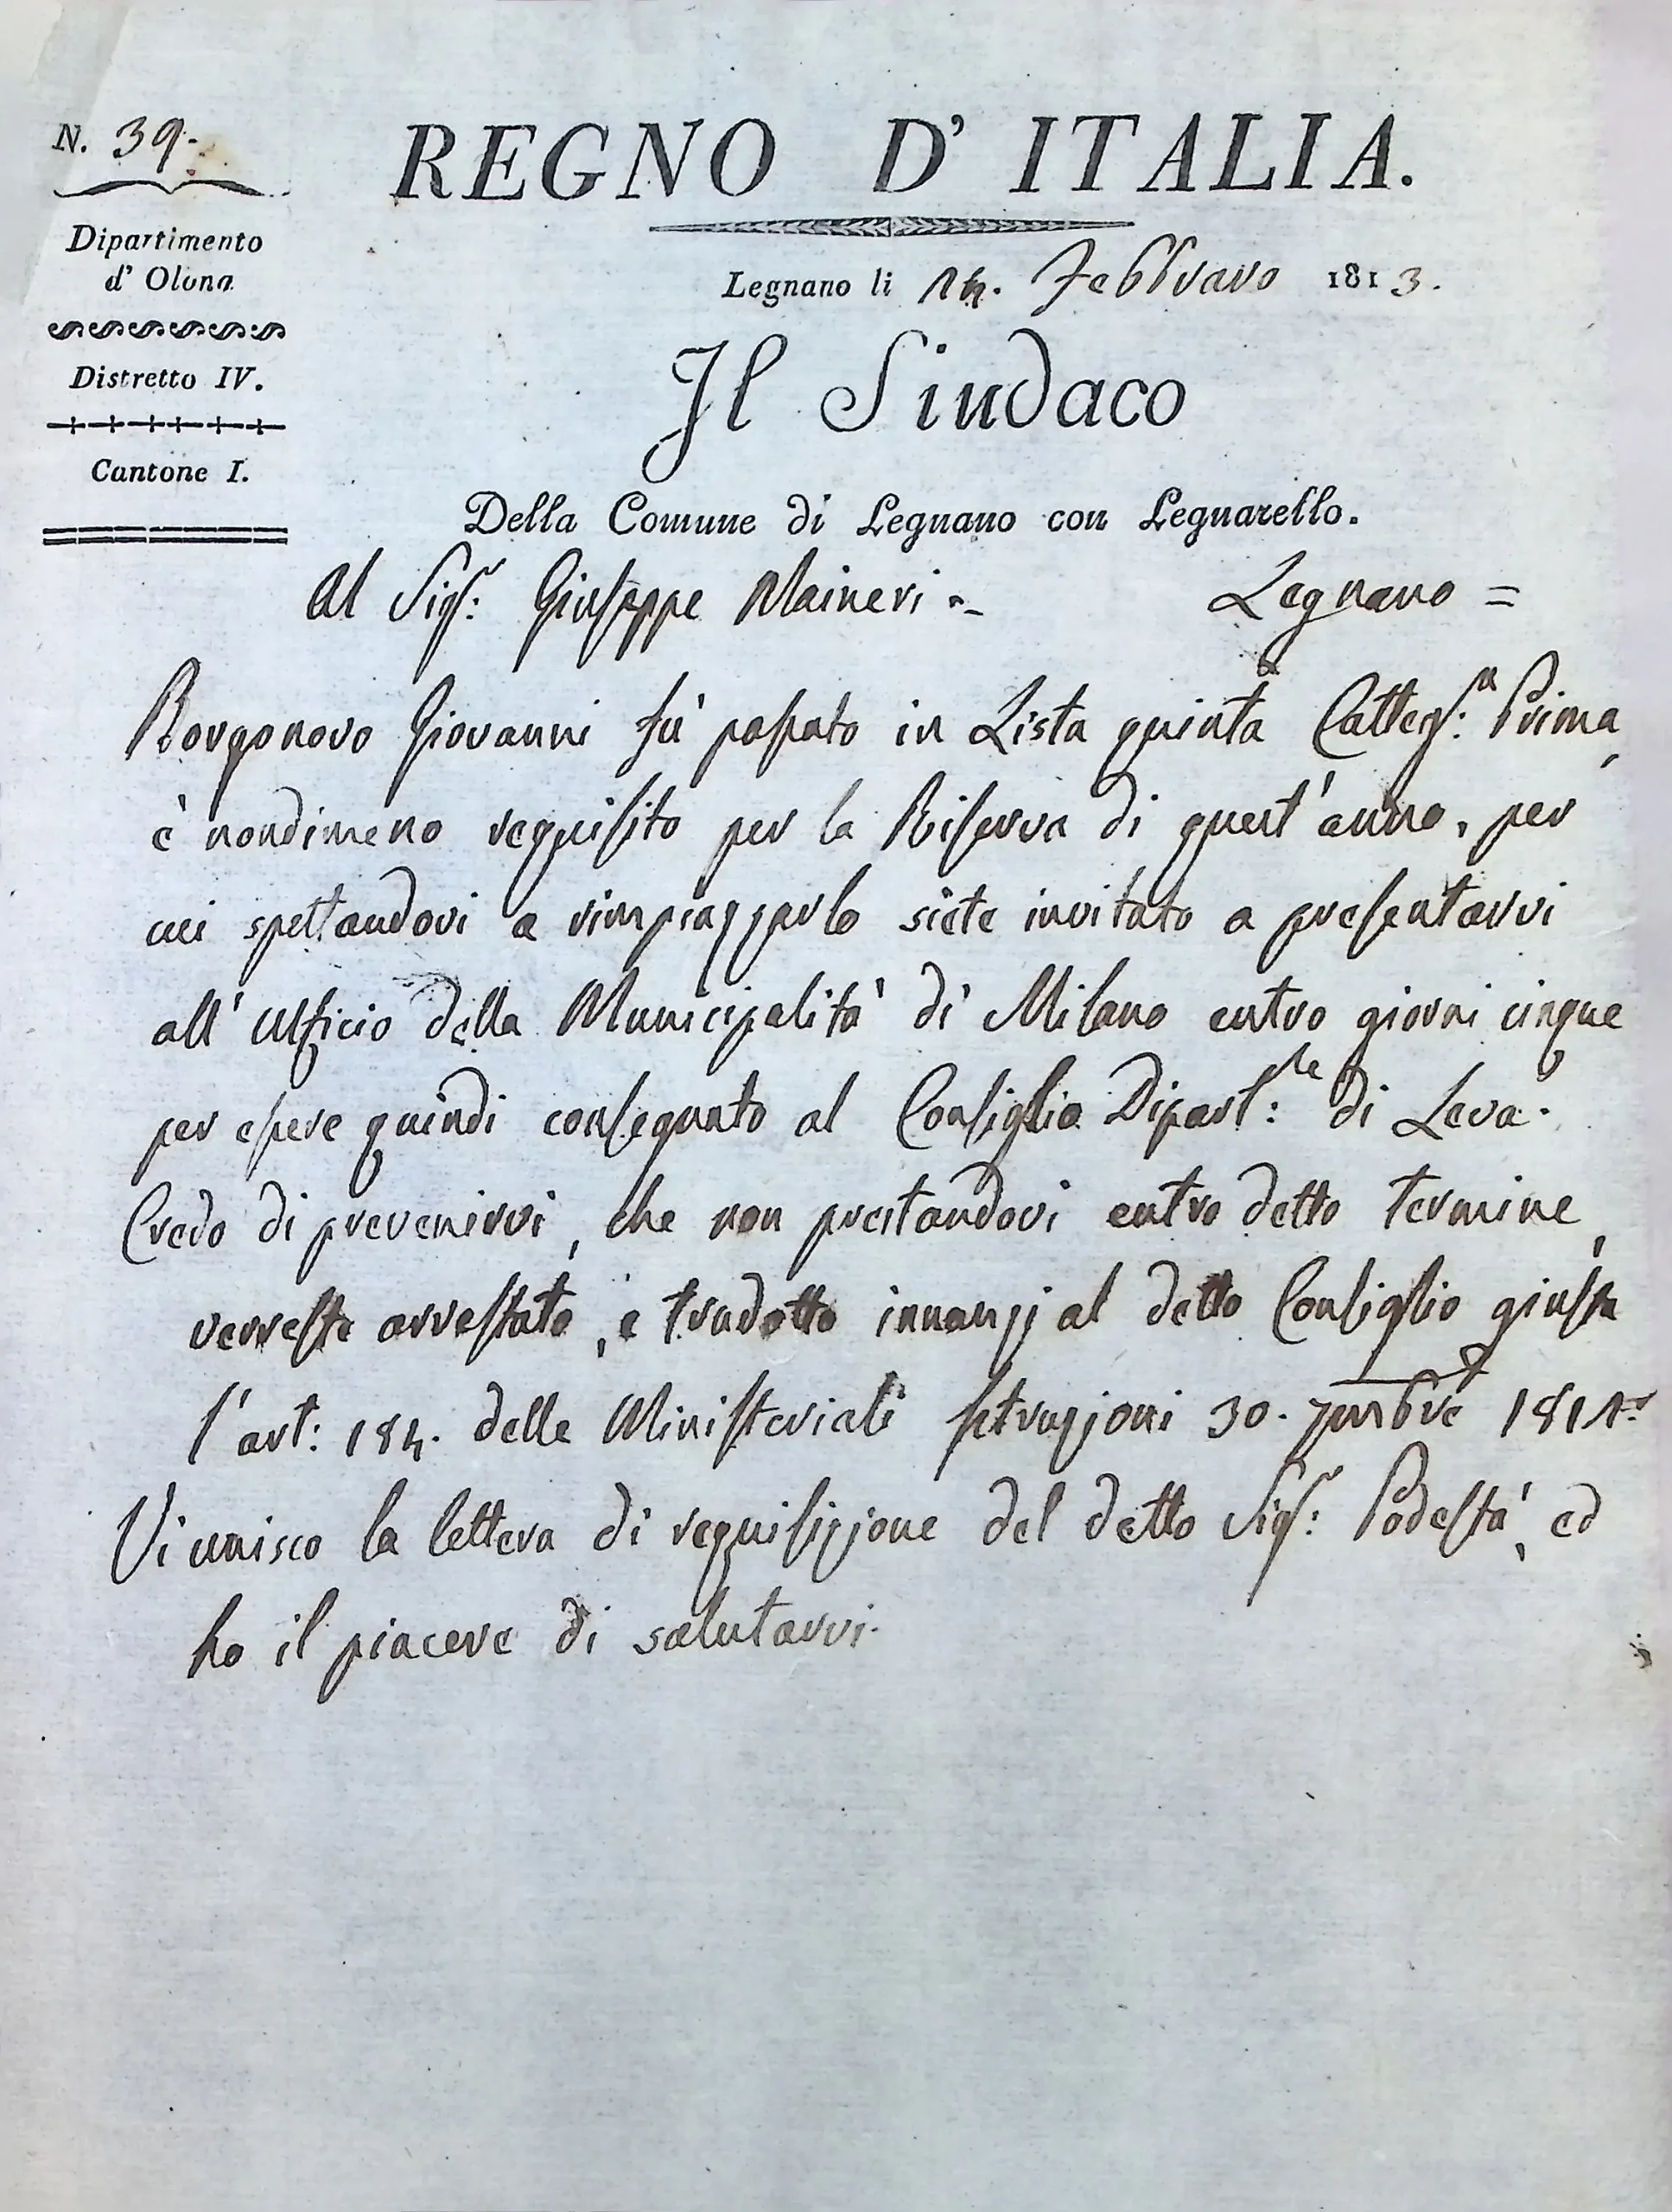 N. 39.
REGNO D' ITALIA.
Dipartimento
d' Olona
Distretto IV.
Cantone I.
Legnano li 14. Febbraro 1813.
Il Sindaco
Della Comune di Legnano con Legnarello.
Al Sigr: Giuseppe Maineri Legnano =
Borgonovo Giovanni fù passato in Lista quinta Categra: Prima,
è nondimeno requisito per la Riserva di quest'anno, per
cui spettandovi a rimpiazzarlo siete invitato a presentarvi
all'Ufficio della Municipalità di Milano entro giorni cinque
per essere quindi consegnato al Consiglio Dipart:le di Leva.
Credo di prevenirvi, che non prestandovi entro detto termine,
verreste arrestato, e tradotto innanzi al detto Consiglio giusta
l'art: 184. delle Ministeriali Istruzioni 30. 7mbre 1811.
Vi unisco la lettera di requisizione del detto Sigr: Podestà, ed
ho il piacere di salutarvi.